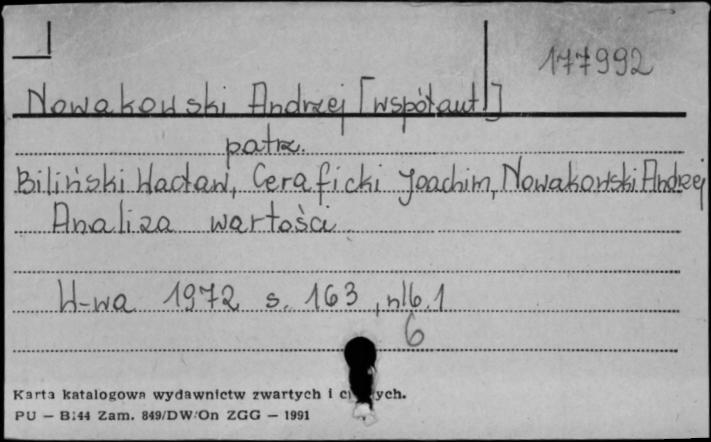 177992
Nowakowski Andrzej [współaut.]
patrz.
Biliński Wacław, Ceraficki Joachim, Nowakowski Andrzej
Analiza wartości
W-wa 1972 s. 163, nlb. 1
6
Karta katalogowa wydawnictw zwartych i
PU — B:44 Zam. 849/DW/On ZGG — 1991